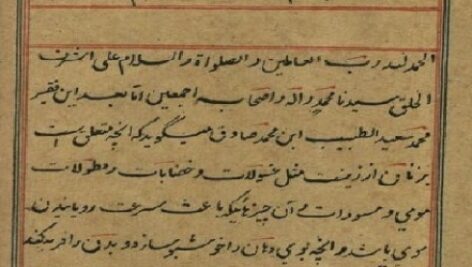 الحمد لله رب العالمین والصلواة والسلام علی اشرف
الخلق سیدنا محمد واله واصحابه اجمعین اما بعد این فقیر
محمد سعید الطبیب ابن محمد صادق میگوید که آنچه متعلق است
بزنان از زینت مثل غسولات و خضابات و مطولات
موی و مسودات آن چیزهائیکه باعث سرعت رویانیدن
موی باشد و آنچه بوی دهان را خوشبو سازد و بدن را فربه کند